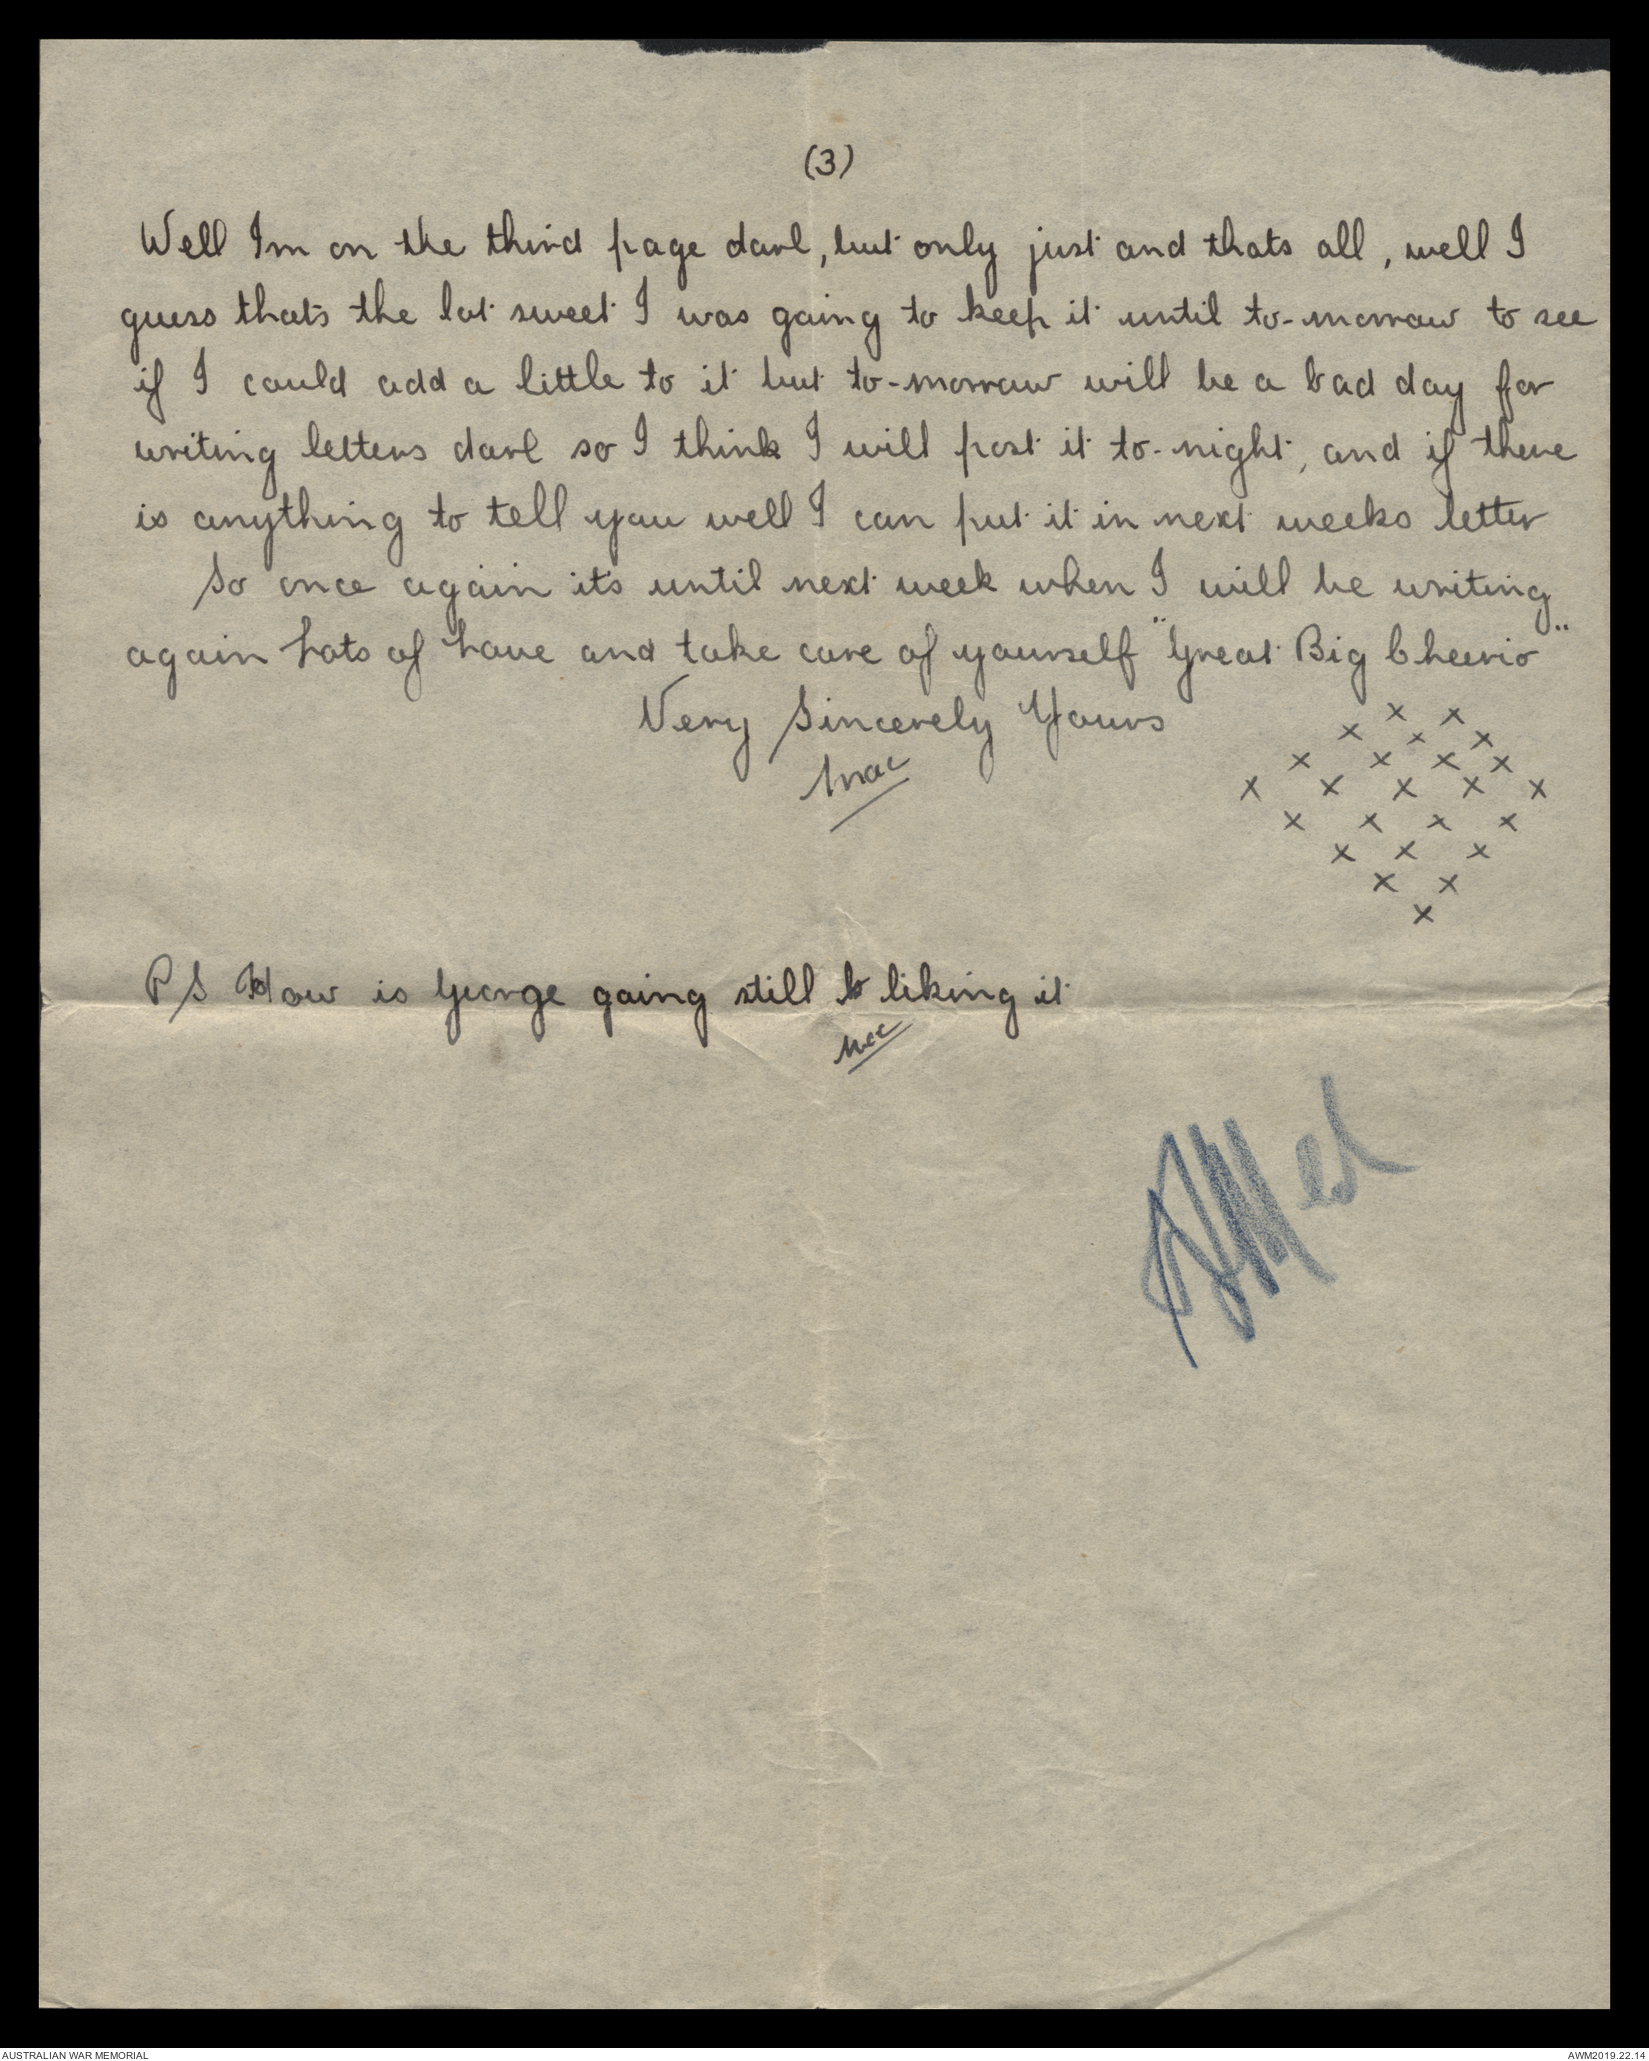 (3)
Well Im on the third page darl, but only just and thats all, well I
guess thats the lot sweet I was going to keep it until to-morrow to see
if I could add a little to it but to-morrow will be a bad day for
writing letters darl so I think I will post it to-night, and if there
is anything to tell you well I can put it in next weeks letter
So once again its until next week when I will be writing
again Lots of Love and take care of yourself "Great Big Cheerio"
Very Sincerely Yours
Mac
x x
x x x
x x x x
x x x x x
x x x x
x x x
x x
x
PS How is George going still liking it
Mac
AUSTRALIAN WAR MEMORIAL
AWM2019.22.14